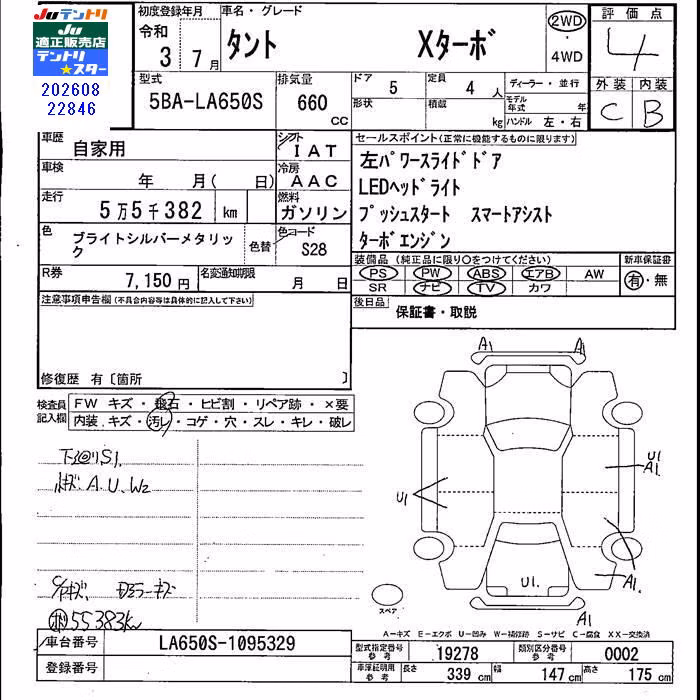 Juテントリ
Ju
適正販売店
テントリ
★スター
202608
22846
初度登録年月 車名・グレード
令和
3 7月 タント Xターボ
2WD
・
4WD
評価点
4
外装 内装
C B
型式 排気量 ドア 5 定員 4 人 ディーラー・並行
5BA-LA650S 660 CC
形状 積載 kg モデル年式 年
ハンドル 左・右
車歴 自家用 シフト IAT
車検 年 月( 日) 冷房 AAC
走行 5万5千382 km 燃料 ガソリン
色 ブライトシルバーメタリック 色替 色コード S28
R券 7,150円 名変通知期限 月 日
セールスポイント(正常に機能するものに限ります)
左パワースライドドア
LEDヘッドライト
プッシュスタート スマートアシスト
ターボエンジン
装備品(純正品に限り○をつけてください) 新車保証書
PS PW ABS エアB AW 有・無
SR ナビ TV カワ
後日品 保証書・取説
注意事項申告欄(不具合内容等は具体的に記入して下さい)
修復歴 有〔箇所 〕
検査員記入欄 FW キズ・飛石・ヒビ割・リペア跡・×要
内装 キズ・汚レ・コゲ・穴・スレ・キレ・破レ
S1.
A.U.W2
55383km
A1 A1
U1
A1.
U1
U1. A1.
A1
スペア
A-キズ E-エクボ U-凹み W-補修跡 S-サビ C-腐食 XX-交換済
車台番号 LA650S-1095329
登録番号
型式指定番号 参考 19278 類別区分番号 参考 0002
車庫証明用 参考 長さ 339 cm 幅 147 cm 高さ 175 cm